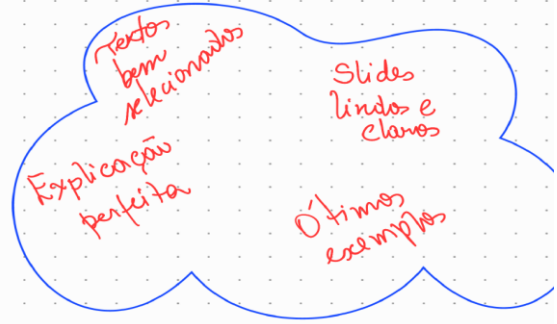 Textos
bem
selecionados
Slides
lindos e
claros
Explicação
perfeita
Ótimos
exemplos